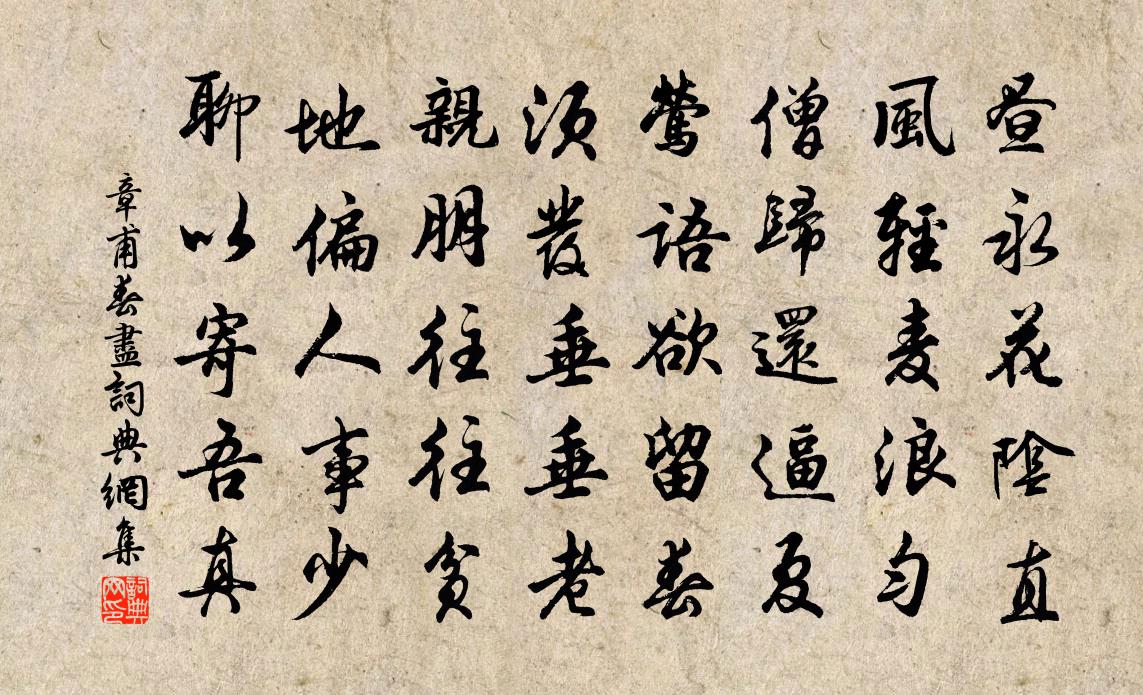 昼永花陰直
風輕麦浪匀
僧歸還逼夏
鶯語欲留春
須發垂垂老
親朋往往貧
地偏人事少
聊以寄吾真
章甫春盡詞典網集
詞典網印